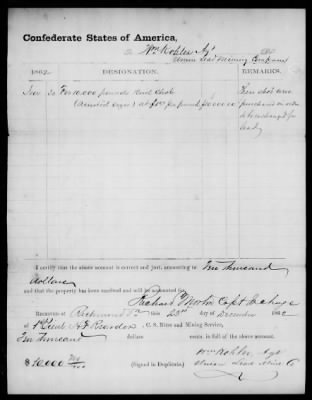 Confederate States of America,
To Wm Kohler Agt Dr.
Union Lead Mining Company
1862. DESIGNATION. REMARKS.
Nov 20 For 10,000 pounds Lead Shot
(assorted sizes) at $1.00 per pound $10,000.00
These shot were
purchased in order
to be exchanged for
lead,
I certify that the above account is correct and just, amounting to Ten thousand
dollars
and that the property has been received and will be accounted for,
Richard Morton Capt. In charge
RECEIVED of Richmond Va this 20th day of December 1862
of 1st Lieut, C. S. Nitre and Mining Service,
Ten thousand dollars cents. in full of the above account.
$10,000 no/100 (Signed in Duplicate.) Wm Kohler, Agt
Union Lead Mine Co